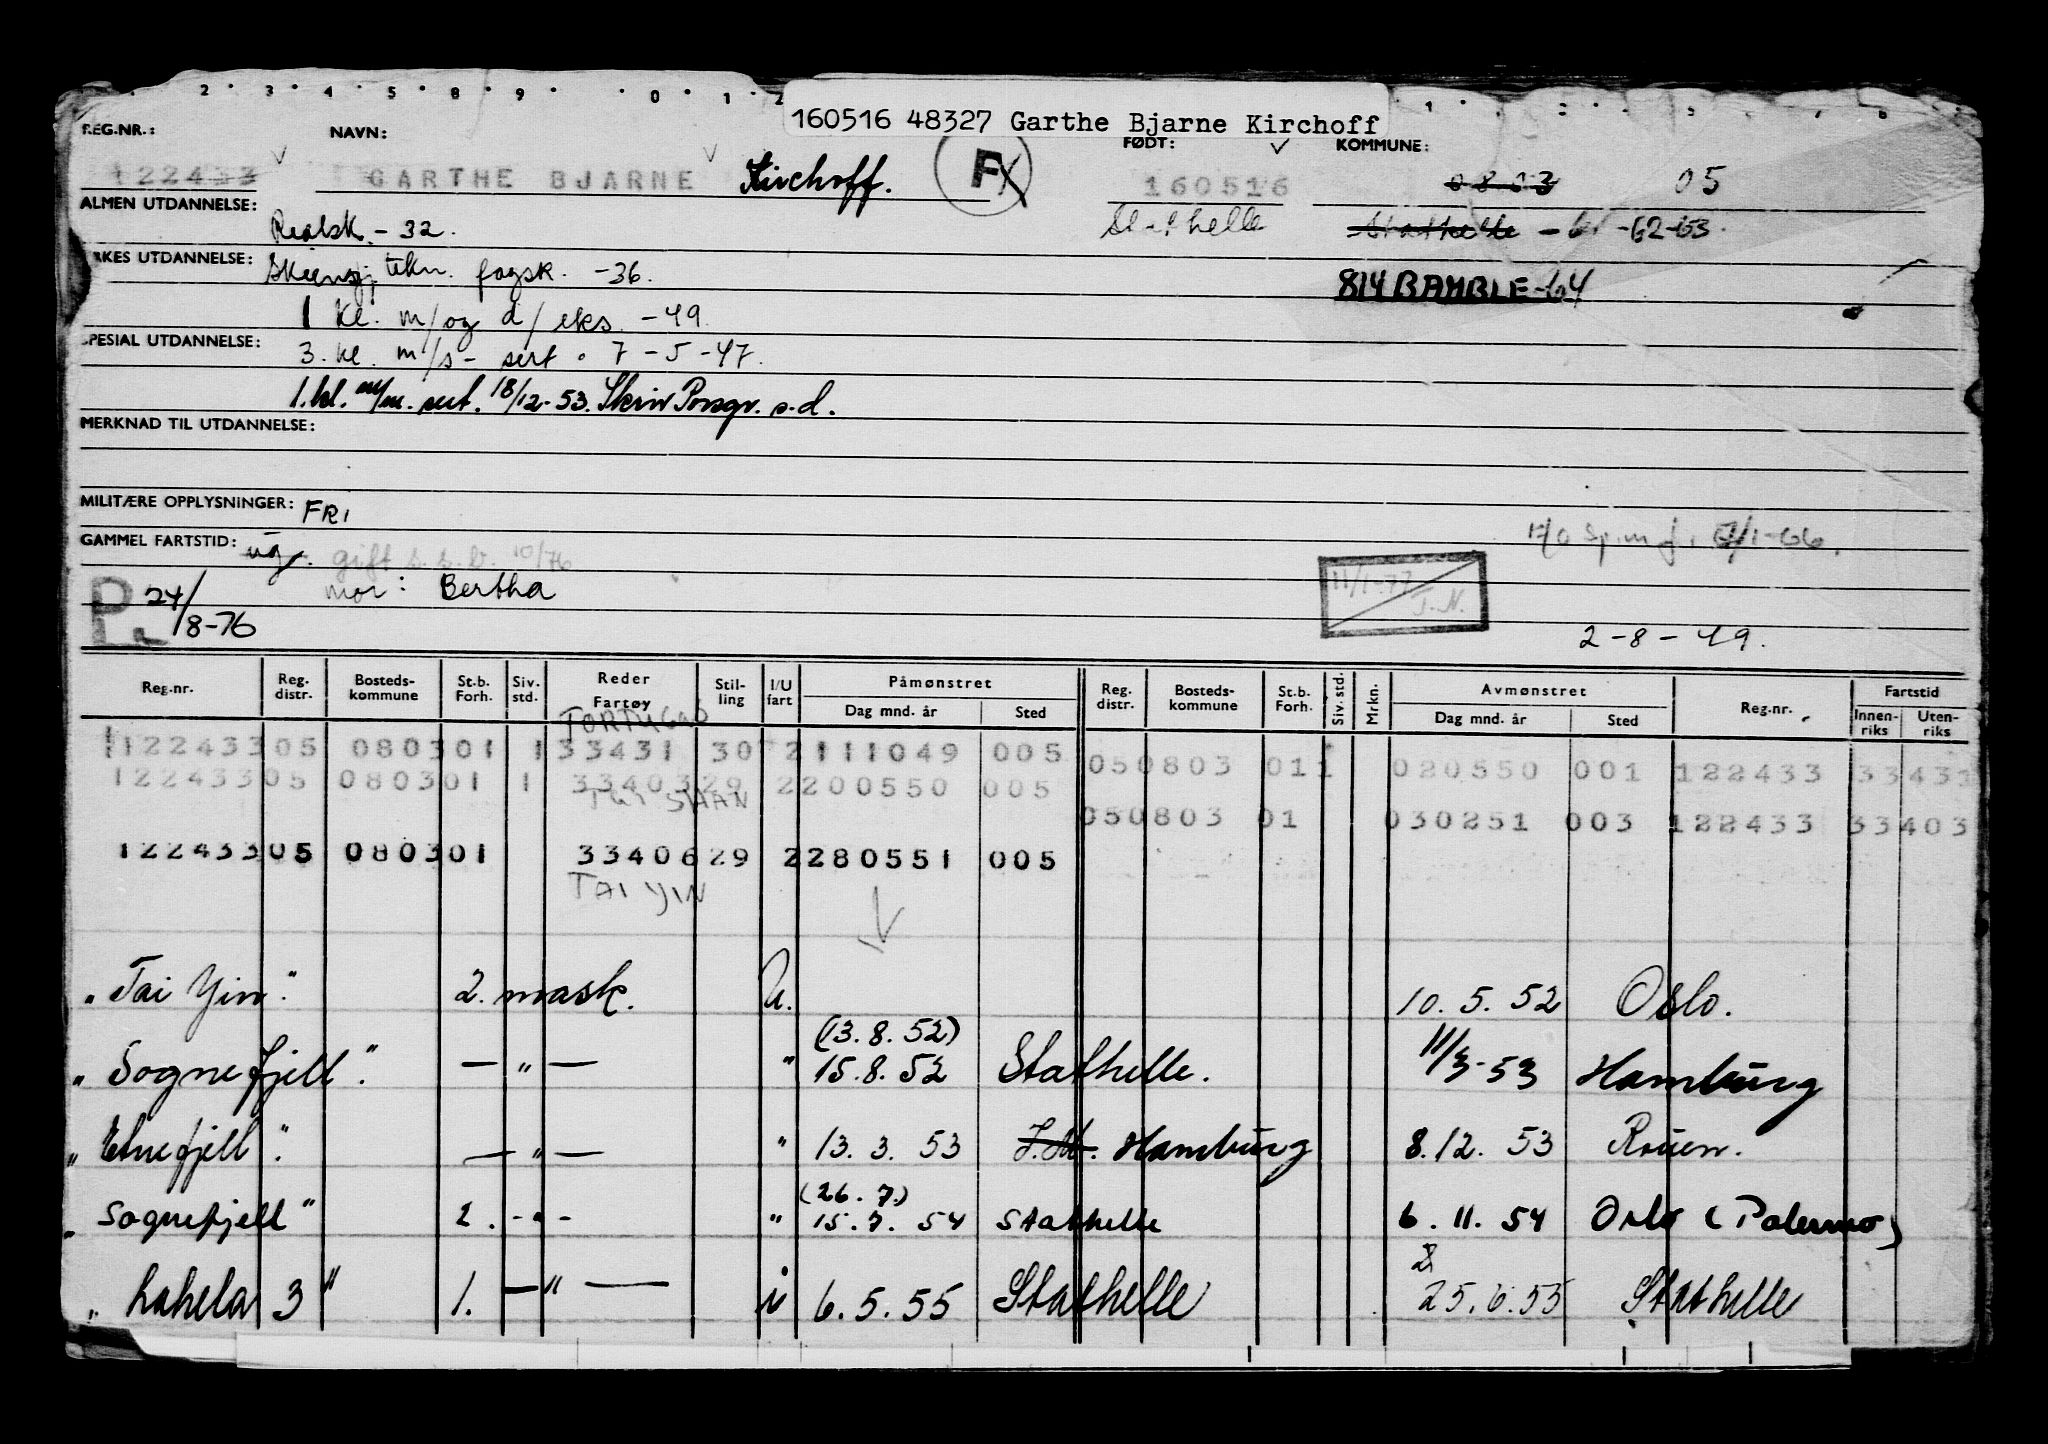 160516 48327 Garthe Bjarne Kirchoff
REG.NR.: NAVN: FØDT: KOMMUNE:
122433 GARTHE BJARNE Kirchoff. F 160516 0803 05
ALMEN UTDANNELSE: Realsk. - 32. Stathelle Stathelle - 62-63
YRKES UTDANNELSE: Skiensfj. tekn. fagsk. -36. 814 BAMBLE-64
1 kl. m/og d/eks. -49.
SPESIAL UTDANNELSE: 3. kl. m/s- sert. 7-5-47.
1. kl. m/m. sert. 18/12-53. Skriv Porsgr. s.d.
MERKNAD TIL UTDANNELSE:
MILITÆRE OPPLYSNINGER: FRI
GAMMEL FARTSTID: ug. gift s.s.b. 10/76
mor: Bertha 11/1-77 T.N.
P. 24/8-76 2-8-49.
Reg.nr. Reg. distr. Bosteds- kommune St.b. Forh. Siv. std. Reder Fartøy Stil- ling I/U fart Påmønstret Dag mnd. år Sted Reg. distr. Bosteds- kommune St.b. Forh. Siv. std. Mrkn. Avmønstret Dag mnd. år Sted Reg.nr. Fartstid Innen- riks Uten- riks
TORTUGAS
122433 05 0803 01 1 33431 30 2 111049 005 05 0803 01 1 020550 001 122433 33431
122433 05 0803 01 1 33403 29 2 200550 005
TAI SHAN
05 0803 01 030251 003 122433 33403
122433 05 0803 01 33406 29 2 280551 005
TAI YIN
"Tai Yin." 2. mask. U. 10. 5. 52 Oslo.
(13.8.52)
"Sognefjell." — " — " 15.8.52 Stathelle. 11/3-53 Hamburg
"Etnefjell." — " — " 13. 3. 53 Hamburg 8.12. 53 Rouen.
(26.7.)
"Sognefjell" 2. - " - " 15.7. 54 Stathelle 6. 11. 54 Oslo (Palermo)
"Lahela 3" 1. — " — i 6.5.55 Stathelle 25.6.55 Stathelle